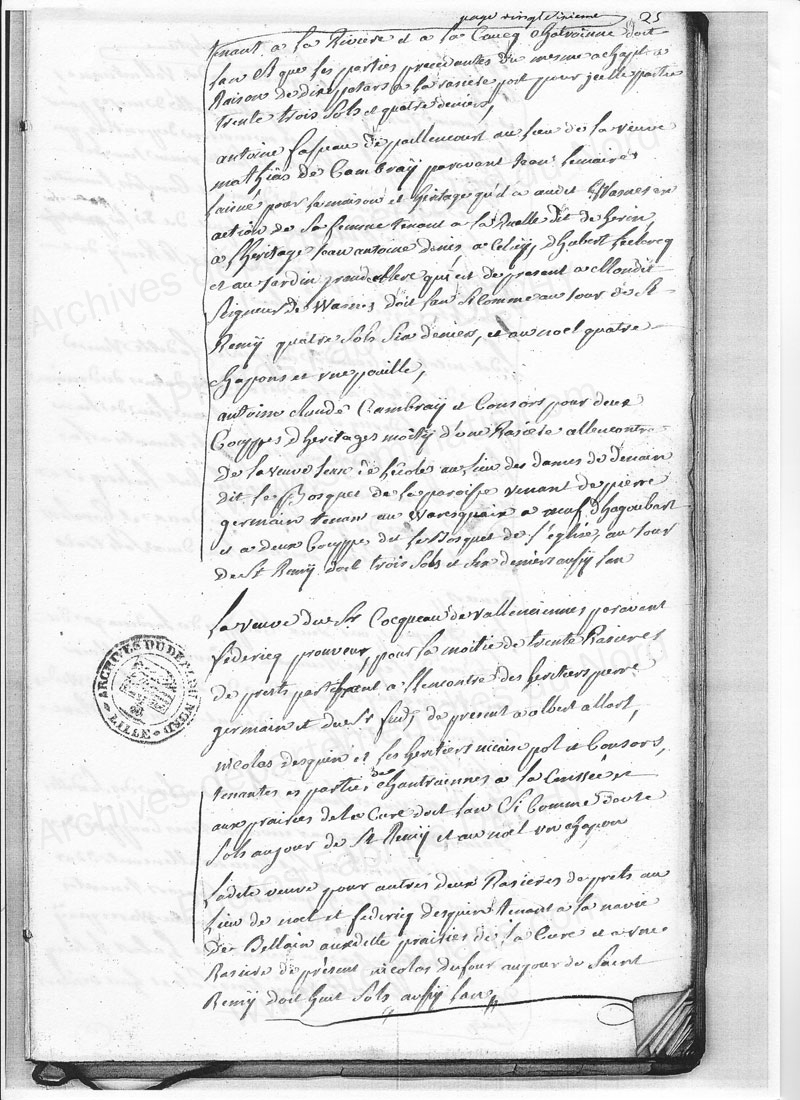 page vingt sixieme 25
tenant a la Riviere et a la doit
l'an et que les parties precedentes du mesme achapt a
Raison de dix patars a la rasiere port pour jcelle partie
trente trois sols et quatre deniers,
antoine fasseau de paillencourt au lieu de la veuve
mathias de Cambraÿ paravant Jean lemaire
laisné pour la maison et heritage qu'il a audit Wasnes en
action de sa femme tenant a la Ruelle dit de herin,
a l'heritage Jean antoine denis a Celuÿ, d'hubert leclercq
et au Jardin qui est de present a Mondit
Seigneur de Wasnes doit l'an si Comme au Jour de St
Remÿ quatre sols six deniers, et au noel quatre
chapons et une poulle,
antoine claude Cambraÿ et Consors pour deux
Couppes d'heritages moitiÿ d'une Rasiere allencontre
De la veuve au lieu des dames de denain
dit le Bosquet de la paroisse venant de pierre
germain tenant au Waresquaix a
et a deux Couppe dit le Bosquet de l'eglise, au Jour
De St Remÿ doit trois sols et six deniers aussÿ l'an
La veuve du Sr Cocqueau de Vallenciennes paravant
federicq prouveur, pour la moitié de trente Rasieres
de prets a l'encontre des heritiers pierre
germain et du Sr de present a albert allart,
nicolas desquin et les heritiers nicaise pot et Consors,
tenantes es parties de Chantraiennes a la Caussée et
aux prairies de la Cure doit l'an Si Comme douze
sols au jour de St Remÿ et au noel un chapon
Ladite veuve pour autres deux Rasieres de prets au
Lieu de noel et federicq desquin tenant a la navie
De Bellain auxdittes prairies de la Cure et a une
Rasiere de présent nicolas dufour au jour de Saint
Remÿ doit huit sols aussÿ l'an
ARCHIVES DU DEP. DU NORD
LILLE
Archives départementales du Nord